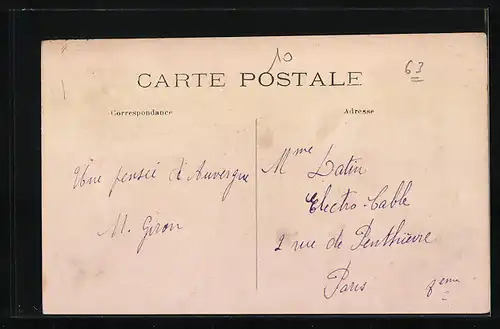 10
63
CARTE POSTALE
Correspondance
Adresse
Une pensée d'Auvergne
M. Giron
Mme Latin
Electro-Cable
2 rue de Penthièvre
Paris
8eme